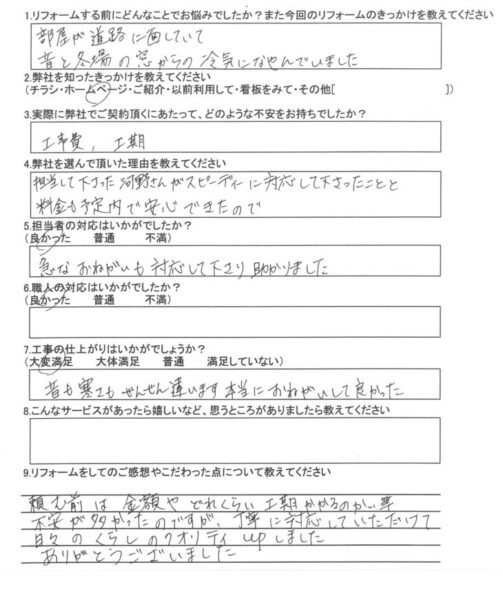 1.リフォームする前にどんなことでお悩みでしたか?また今回のリフォームのきっかけを教えてください
部屋が道路に面していて
音と冬場の窓からの冷気になやんでいました
2.弊社を知ったきっかけを教えてください
(チラシ・ホームページ・ご紹介・以前利用して・看板をみて・その他[ ])
3.実際に弊社でご契約頂くにあたって、どのような不安をお持ちでしたか?
工事費, 工期
4.弊社を選んで頂いた理由を教えてください
担当して下さった河野さんがスピーディに対応して下さったことと
料金も予定内で安心できたので
5.担当者の対応はいかがでしたか?
(良かった 普通 不満)
急なおねがいも対応して下さり助かりました
6.職人の対応はいかがでしたか?
(良かった 普通 不満)
7.工事の仕上がりはいかがでしょうか?
(大変満足 大体満足 普通 満足していない)
音も寒さもぜんぜん違います本当におねがいして良かった
8.こんなサービスがあったら嬉しいなど、思うところがありましたら教えてください
9.リフォームをしてのご感想やこだわった点について教えてください
頼む前は金額やどれくらい工期がかかるのか、等
不安が多かったのですが、丁寧に対応していただけて
日々のくらしのクオリティupしました
ありがとうございました